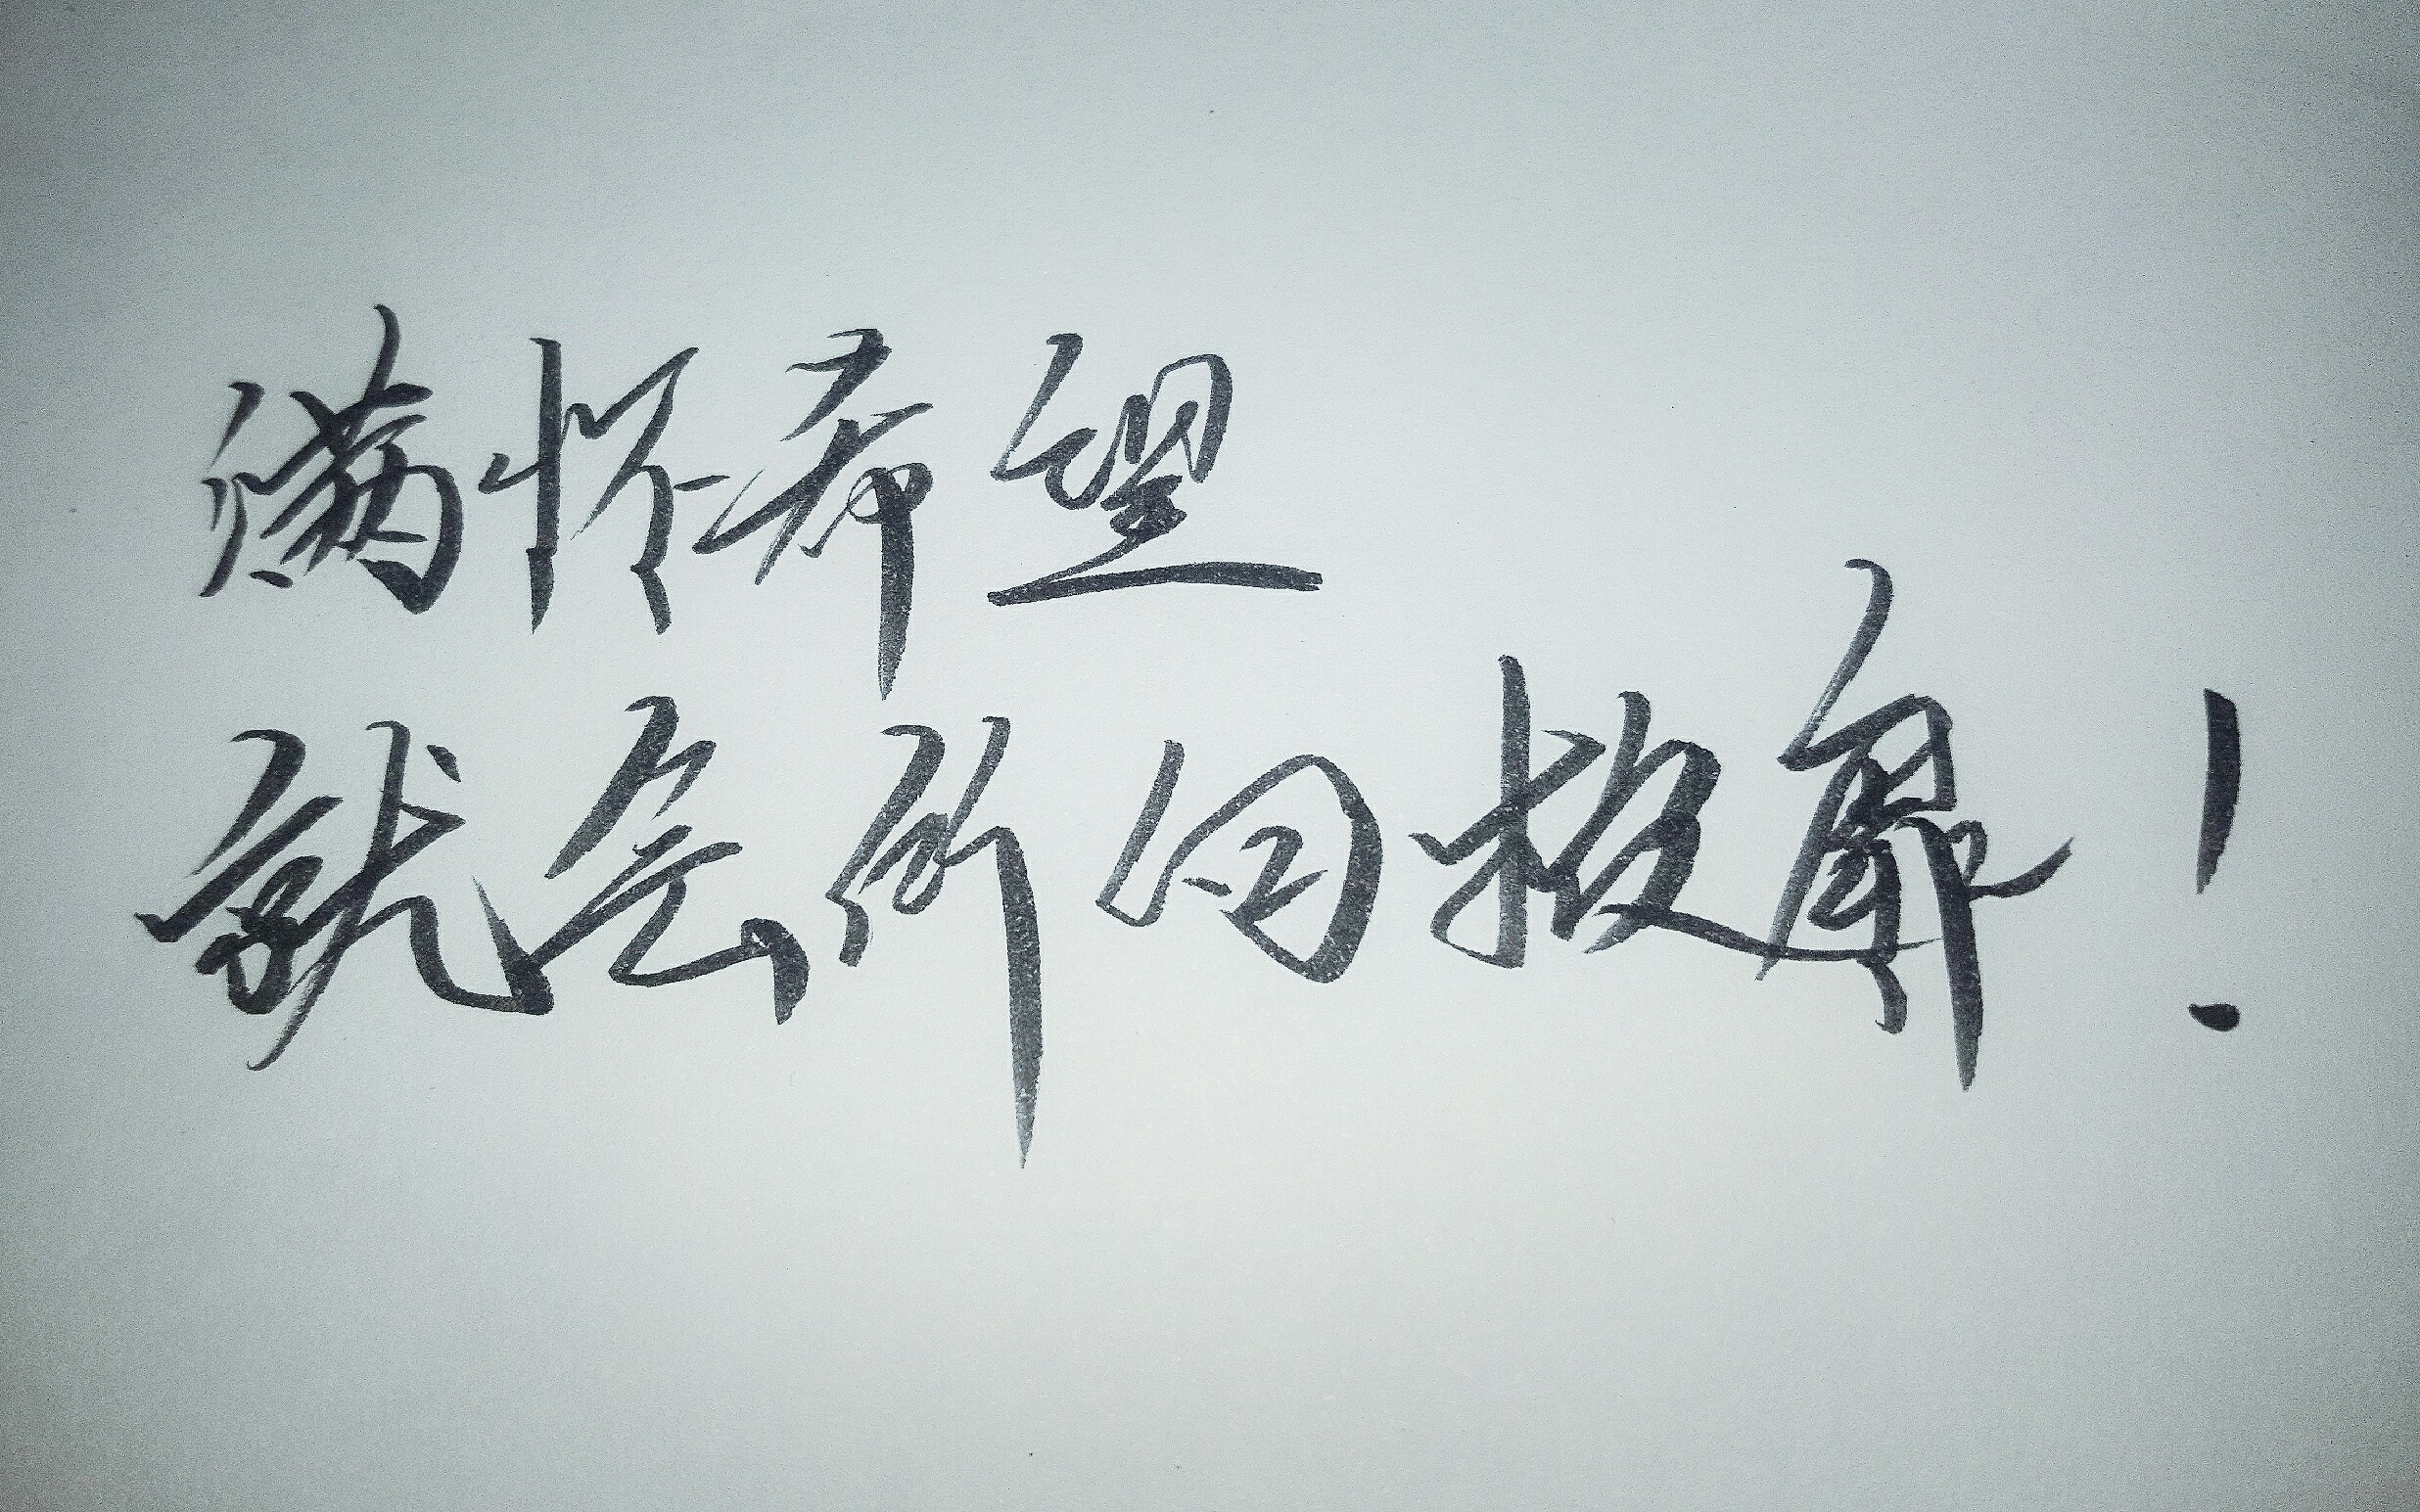 满怀希望
就会所向披靡！